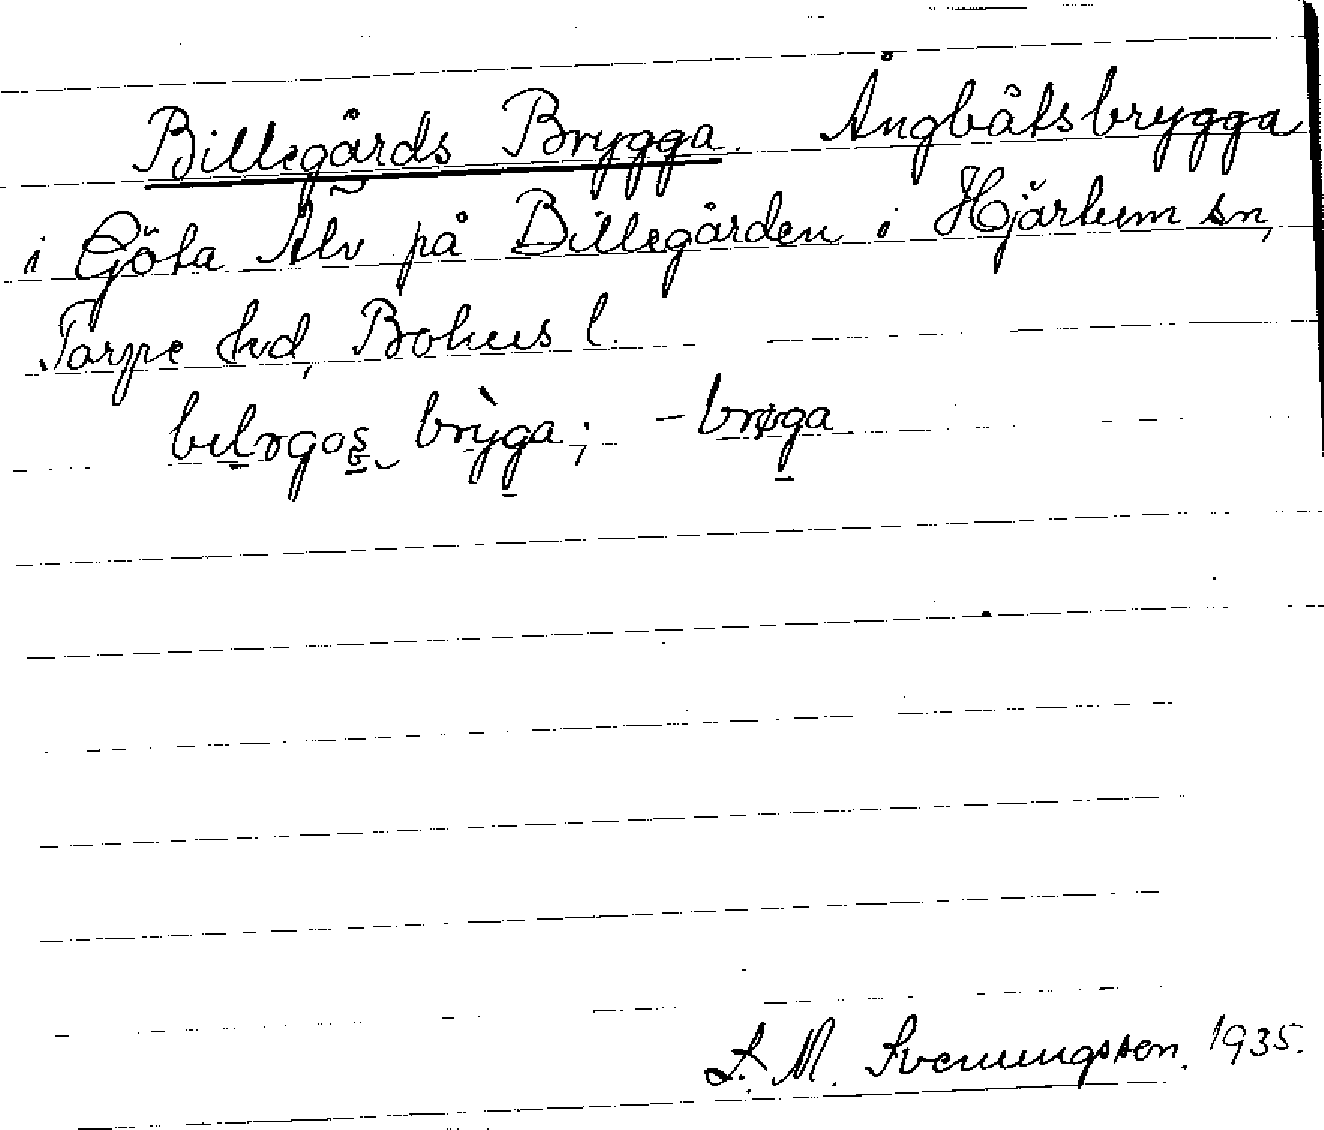 Billegårds Brygga. Ångbåtsbrygga
i Göta Älv på Billegården i Hjärtum sn,
Torpe hd, Bohus l.
bilrgos brỳga; -brøga
S. M. Svenungsson. 1935.